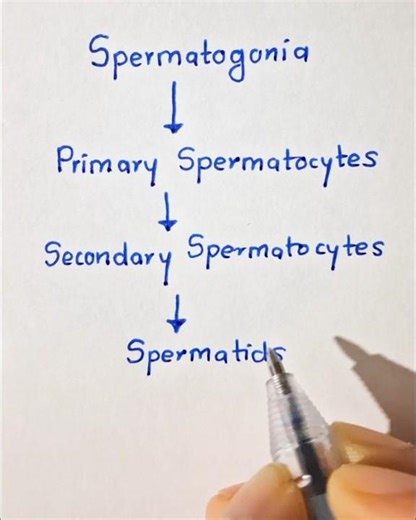 Spermatogonia
Primary Spermatocytes
Secondary Spermatocytes
Spermatids